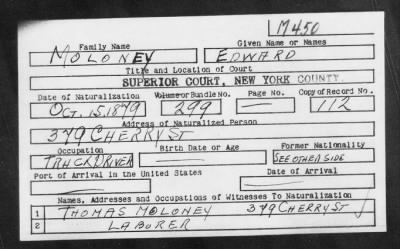 M450
Family Name Given Name or Names
MOLONEY EDWARD
Title and Location of Court
SUPERIOR COURT, NEW YORK COUNTY.
Date of Naturalization Volume or Bundle No. Page No. Copy of Record No.
OCT. 15, 1879 299 — 112
Address of Naturalized Person
379 CHERRY ST
Occupation Birth Date or Age Former Nationality
TRUCK DRIVER — SEE OTHER SIDE
Port of Arrival in the United States Date of Arrival
— —
Names, Addresses and Occupations of Witnesses To Naturalization
1 THOMAS MOLONEY 379 CHERRY ST
2 LABORER